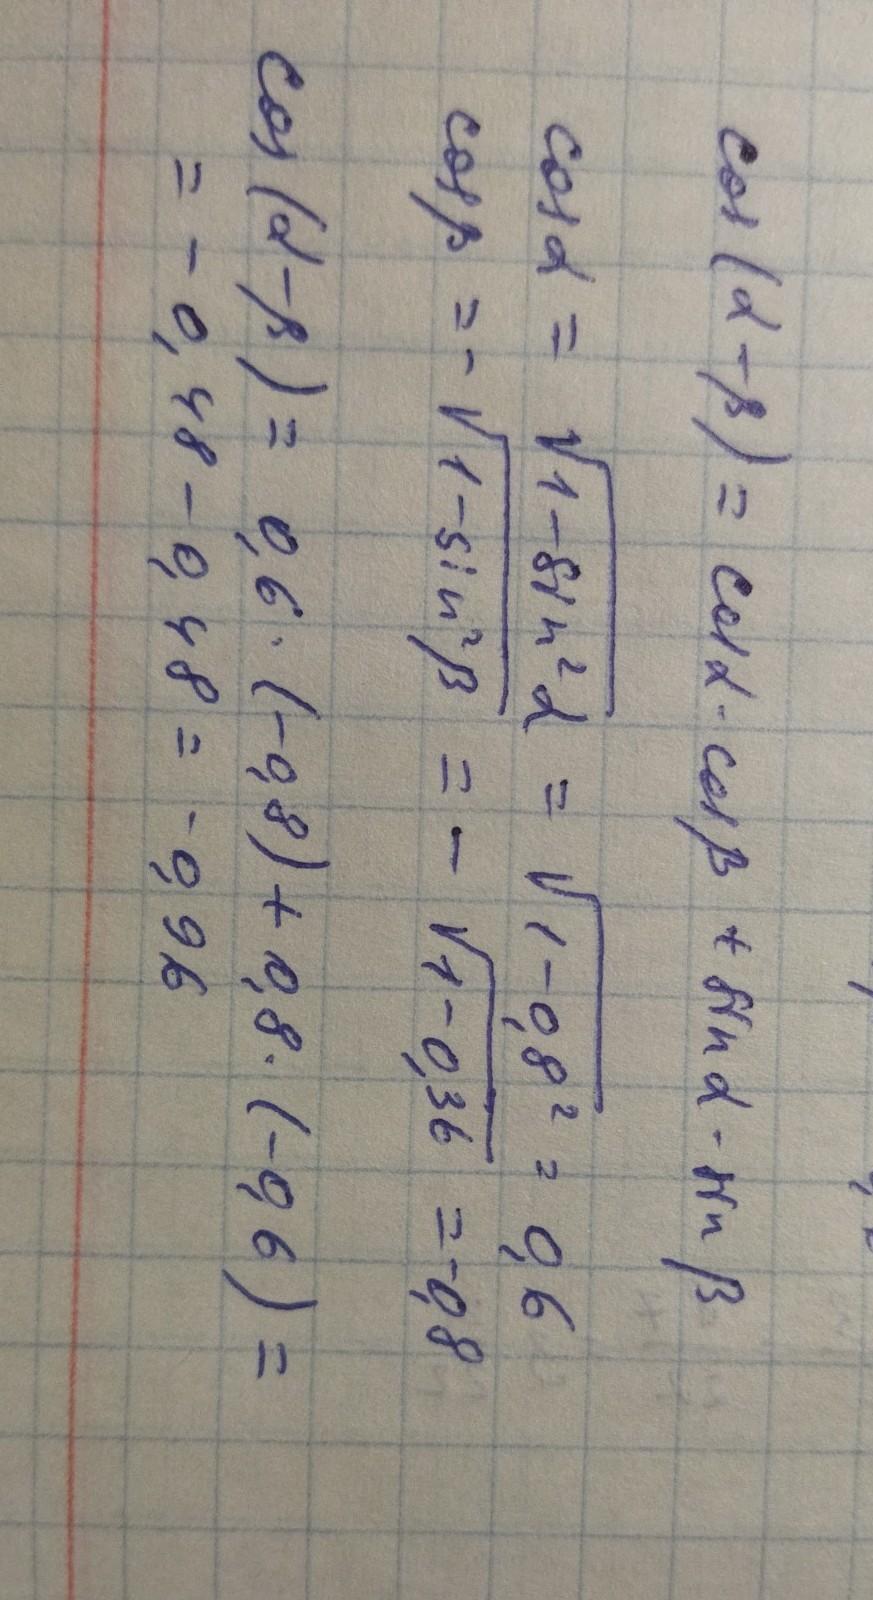 cos(α-β) = cosα·cosβ + sinα·sinβ
cosα = √1-sin²α = √1-0,8² = 0,6
cosβ = -√1-sin²β = -√1-0,36 = -0,8
cos(α-β) = 0,6·(-0,8) + 0,8·(-0,6) =
= -0,48-0,48 = -0,96